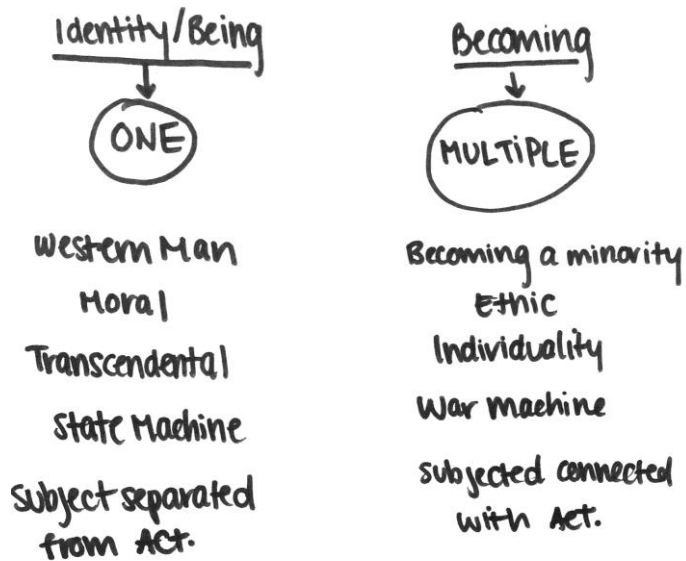 Identity/Being
ONE
Western Man
Moral
Transcendental
State Machine
Subject separated
from Act.
Becoming
MULTiPLE
Becoming a minority
Ethic
Individuality
War machine
Subjected connected
with Act.